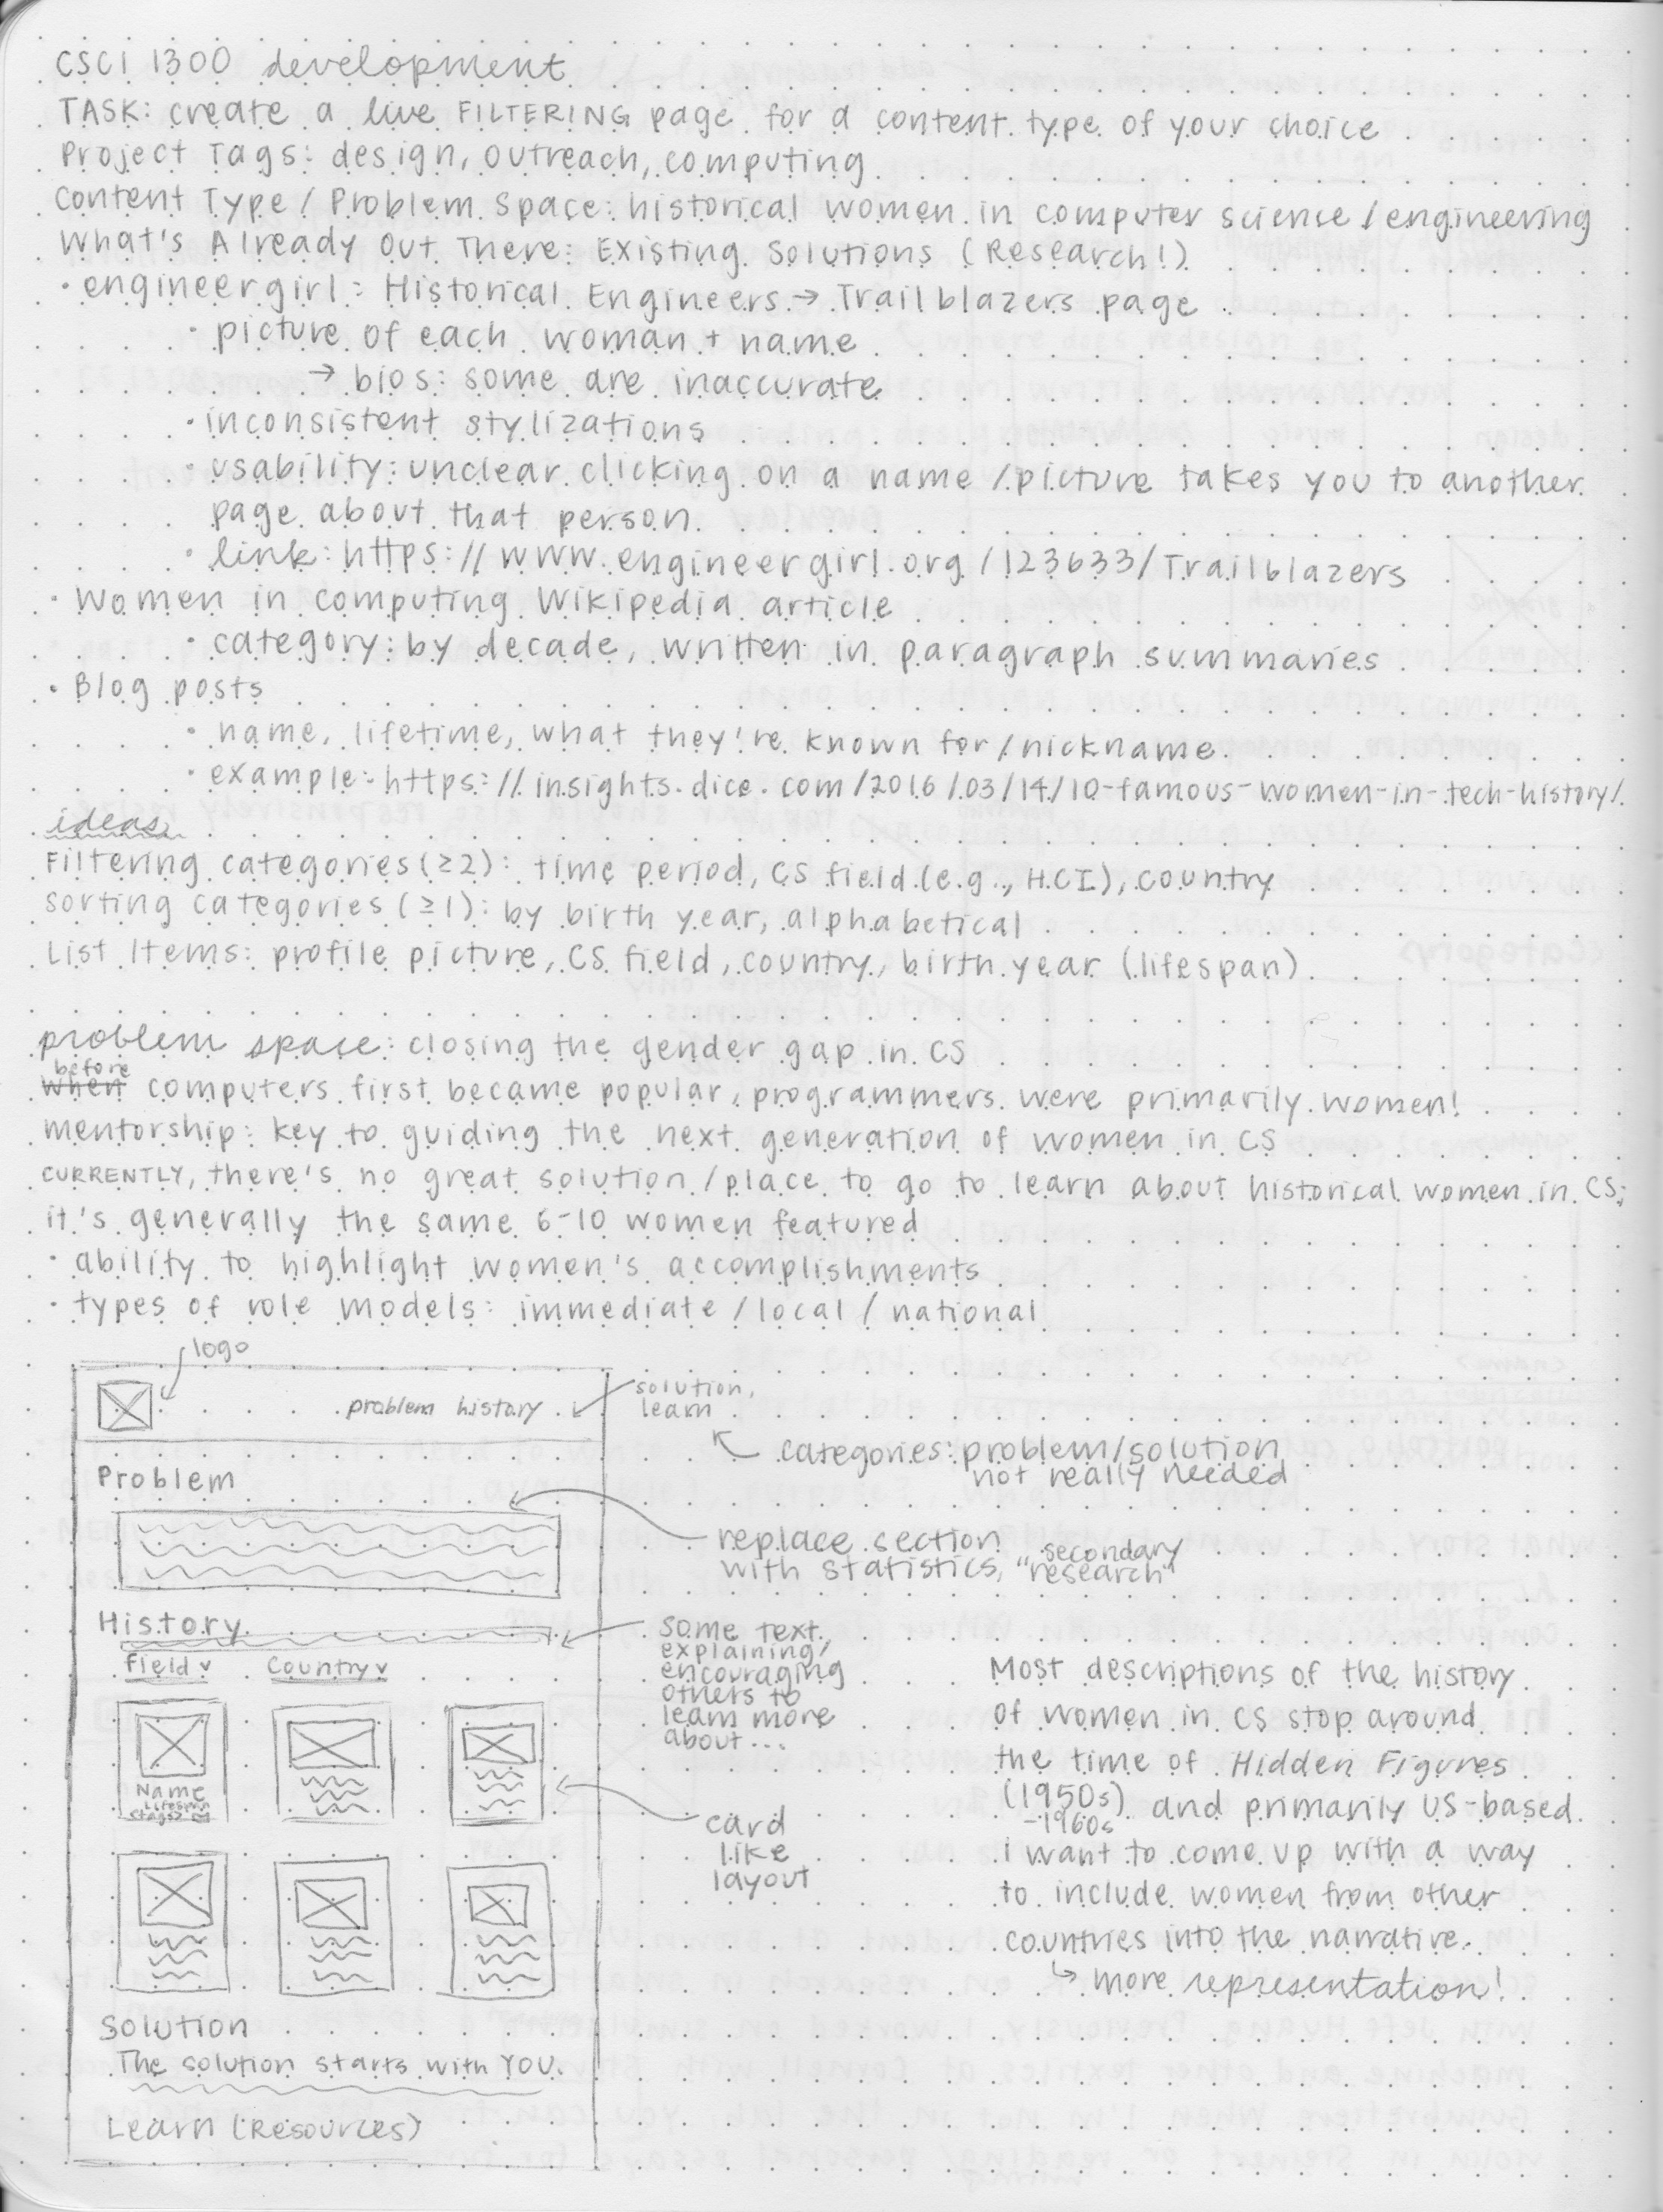 CSCI 1300 development
TASK: create a live FILTERING page for a content type of your choice
Project Tags: design, outreach, computing
Content Type / Problem Space: historical women in computer science / engineering
What's Already Out There: Existing Solutions (Research!)
• engineergirl: Historical Engineers → Trailblazers page
• picture of each woman + name
→ bios: some are inaccurate
• inconsistent stylizations
• usability: unclear clicking on a name / picture takes you to another
page about that person
• link: https://www.engineergirl.org/123633/Trailblazers
• Women in computing Wikipedia article
• category: by decade, written in paragraph summaries
• Blog posts
• name, lifetime, what they're known for / nickname
• example: https://insights.dice.com/2016/03/14/10-famous-women-in-tech-history/
ideas
Filtering categories (≥2): time period, CS field (e.g., HCI), country
Sorting categories (≥1): by birth year, alphabetical
List Items: profile picture, CS field, country, birth year (lifespan)
problem space: closing the gender gap in CS
before
when computers first became popular, programmers were primarily women!
mentorship: key to guiding the next generation of women in CS
CURRENTLY, there's no great solution / place to go to learn about historical women in CS;
it's generally the same 6-10 women featured
• ability to highlight women's accomplishments
• types of role models: immediate / local / national
logo
problem history
solution,
learn
categories: problem/solution
not really needed
Problem
replace section
with statistics, "secondary
research"
History
some text
explaining/
encouraging
others to
learn more
about...
Field v Country v
Name
Lifespan
<tags>
card
like
layout
Most descriptions of the history
of women in CS stop around
the time of Hidden Figures
(1950s) and primarily US-based.
-1960s
i want to come up with a way
to include women from other
countries into the narrative.
↳ more representation!
Solution
The solution starts with YOU.
Learn (Resources)